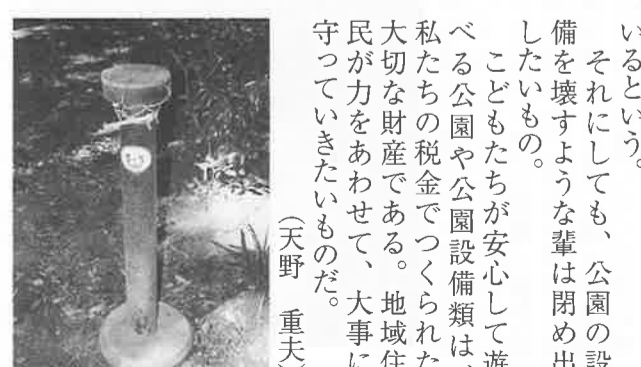 いるという。
　それにしても、公園の設
備を壊すような輩は閉め出
したいもの。
　こどもたちが安心して遊
べる公園や公園設備類は、
私たちの税金でつくられた
大切な財産である。地域住
民が力をあわせて、大事に
守っていきたいものだ。
（天野　重夫）